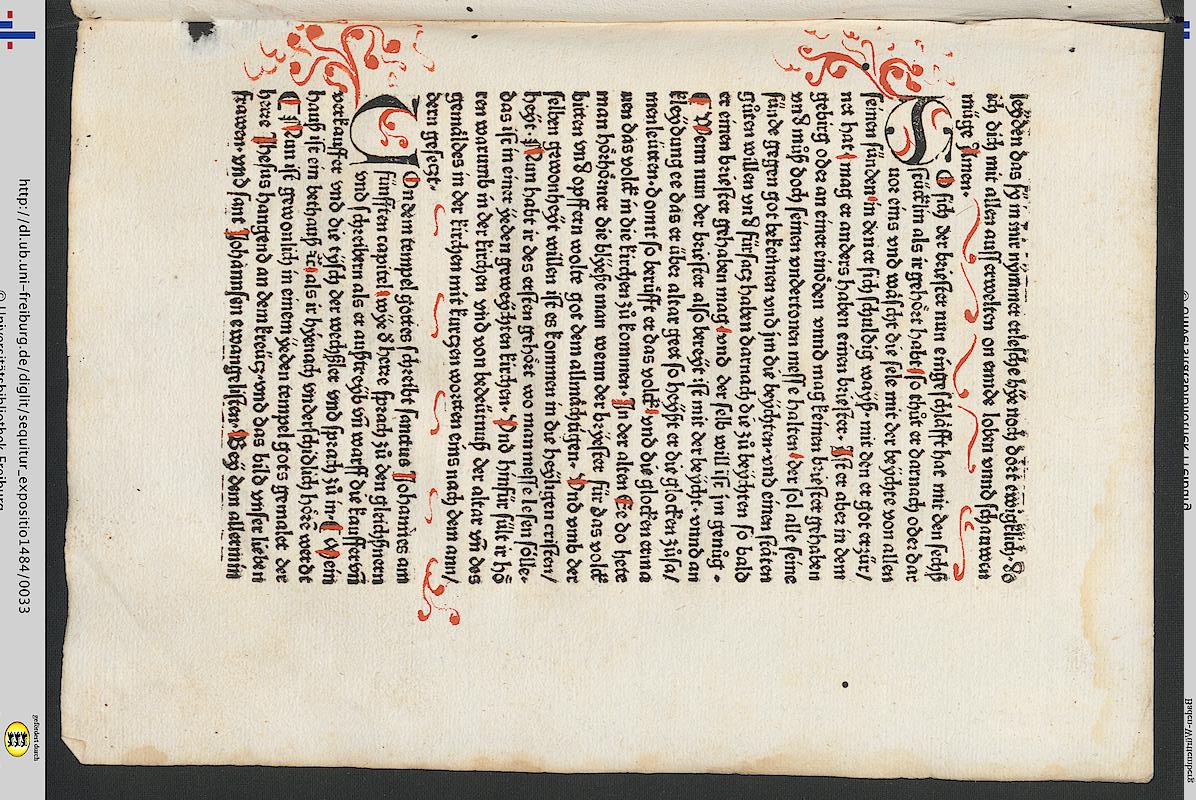 leyden das sy in mir nymmer erlesche hye noch dort ewigklich · dz
ich dich mit allen ausserwelten on ennde loben vnnd schauwen
müge Amen ·
SO sich der briester nun eingeschlåfft hat mit den sechß
stücklin als ir gehört habt / so thůt er darnach oder dar
uor eins vnd wåscht die sele mit der beychte von allen
seinen sünden in den er sich schuldig wayß mit den er got erzür/
net hat / mag er anders haben einen briester · Ist er aber in dem
gebirg oder an einer einöden vnnd mag keinen briester gehaben
vnd můß doch seinen vndertonen messe halten / der sol alle seine
sünde gegen got bekennen vnd im die beychten · vnd einen ståten
gůten willen vnd fürsatz haben darnach die zů beychten so bald
er einen briester gehaben mag / vnd der selb will ist im genůg ·
Wenn nun der briester also bereyt ist mit der beycht · vnnd an
kleydung ee das er über altar geet so heyßt er die glocken zůsa/
men leütten · domit so berůfft er das volck / vnd die glocken erma
nen das volck in die kirchen zů kommen · In der alten Ee do hete
man hörhörner die blyeße man wenn der bryester für das volck
bitten vnd opffern wolte got dem allmåchtigen · Vnd vmb der
selben gewonheyt willen ist es kommen in die heyligen cristen/
heyt · Nun habt ir des ersten gehört wo man messe lesen sölle ·
das ist in einer yeden geweychten kirchen · Vnd hinfür sült ir hö
ren warumb in der kirchen vnd von bedeütnuß der altar vn des
gemåldes in der kirchen mit kurtzen worten eins nach dem ann/
dern gesetzt ·
VOn dem tempel gottes schreibt sanctus Johannes am
fünfften capitel / wye d herre sprach zů den gleichßnern
vnd schreibern als er außtreyb vn warff die kauffer vn
verkauffer vnd die tysch der wechßler vnd sprach zů in · Mein
hauß ist ein bethauß ꝛc / als ir hyenach vnderschidlich hörē werdt
Nun ist gewonlich in einem yeden tempel gots gemalet der
herre Jhesus hangend an dem kreütz · vnd das bild vnser lieben
frawen · vnd sant Johannsen ewangelisten · Bey dem allermin
http://dl.ub.uni-freiburg.de/diglit/sequitur_expositio1484/0033
© Universitätsbibliothek Freiburg
gefördert durch